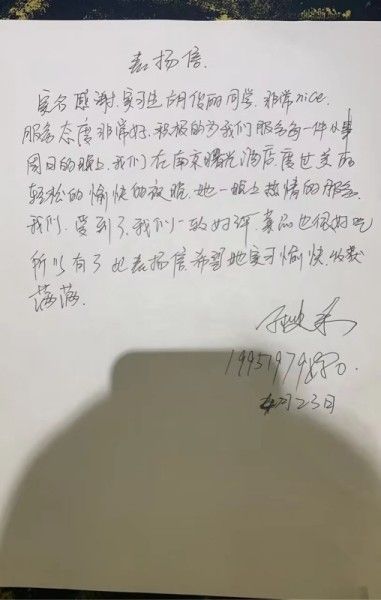 表扬信
实名感谢.实习生胡俊丽同学.非常nice.
服务态度非常好.积极的为我们服务每一件小事
周日的晚上.我们在南京曙光酒店.度过美丽
轻松的愉快的夜晚.她一晚上热情的服务
我们.受到了我们一致好评.菜品也很好吃
所以有了此表扬信.希望她实习愉快.收获
满满.
月23日